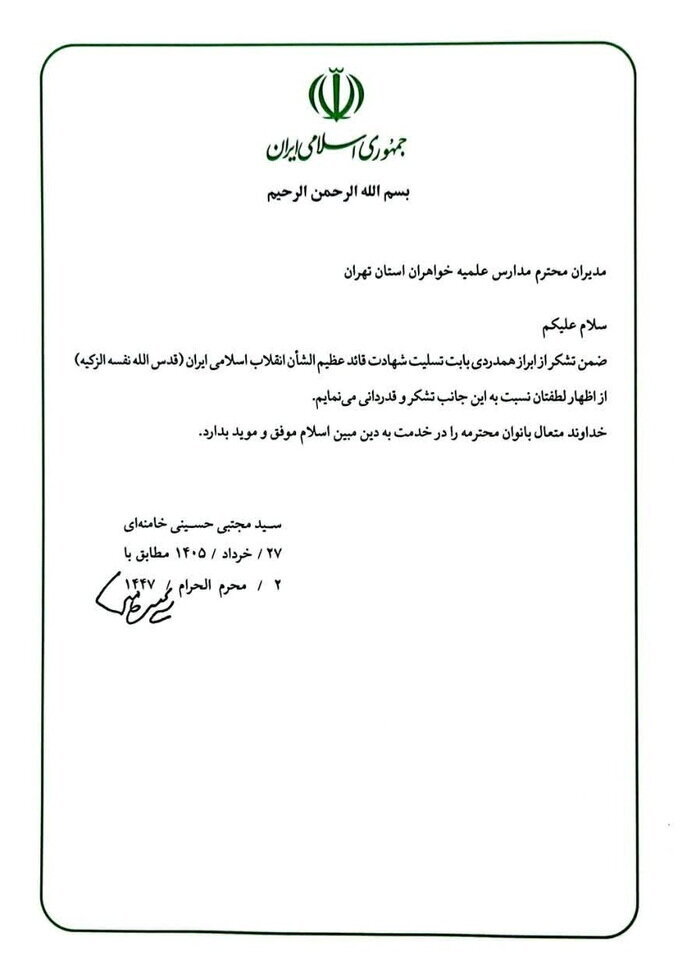 جمهوری اسلامی ایران
بسم الله الرحمن الرحیم
مدیران محترم مدارس علمیه خواهران استان تهران
سلام علیکم
ضمن تشکر از ابراز همدردی بابت تسلیت شهادت قائد عظیم الشأن انقلاب اسلامی ایران (قدس الله نفسه الزکیه)
از اظهار لطفتان نسبت به این جانب تشکر و قدردانی می‌نمایم.
خداوند متعال بانوان محترمه را در خدمت به دین مبین اسلام موفق و موید بدارد.
سید مجتبی حسینی خامنه‌ای
۲۷ / خرداد / ۱۴۰۵ مطابق با
۲ / محرم الحرام / ۱۴۴۷